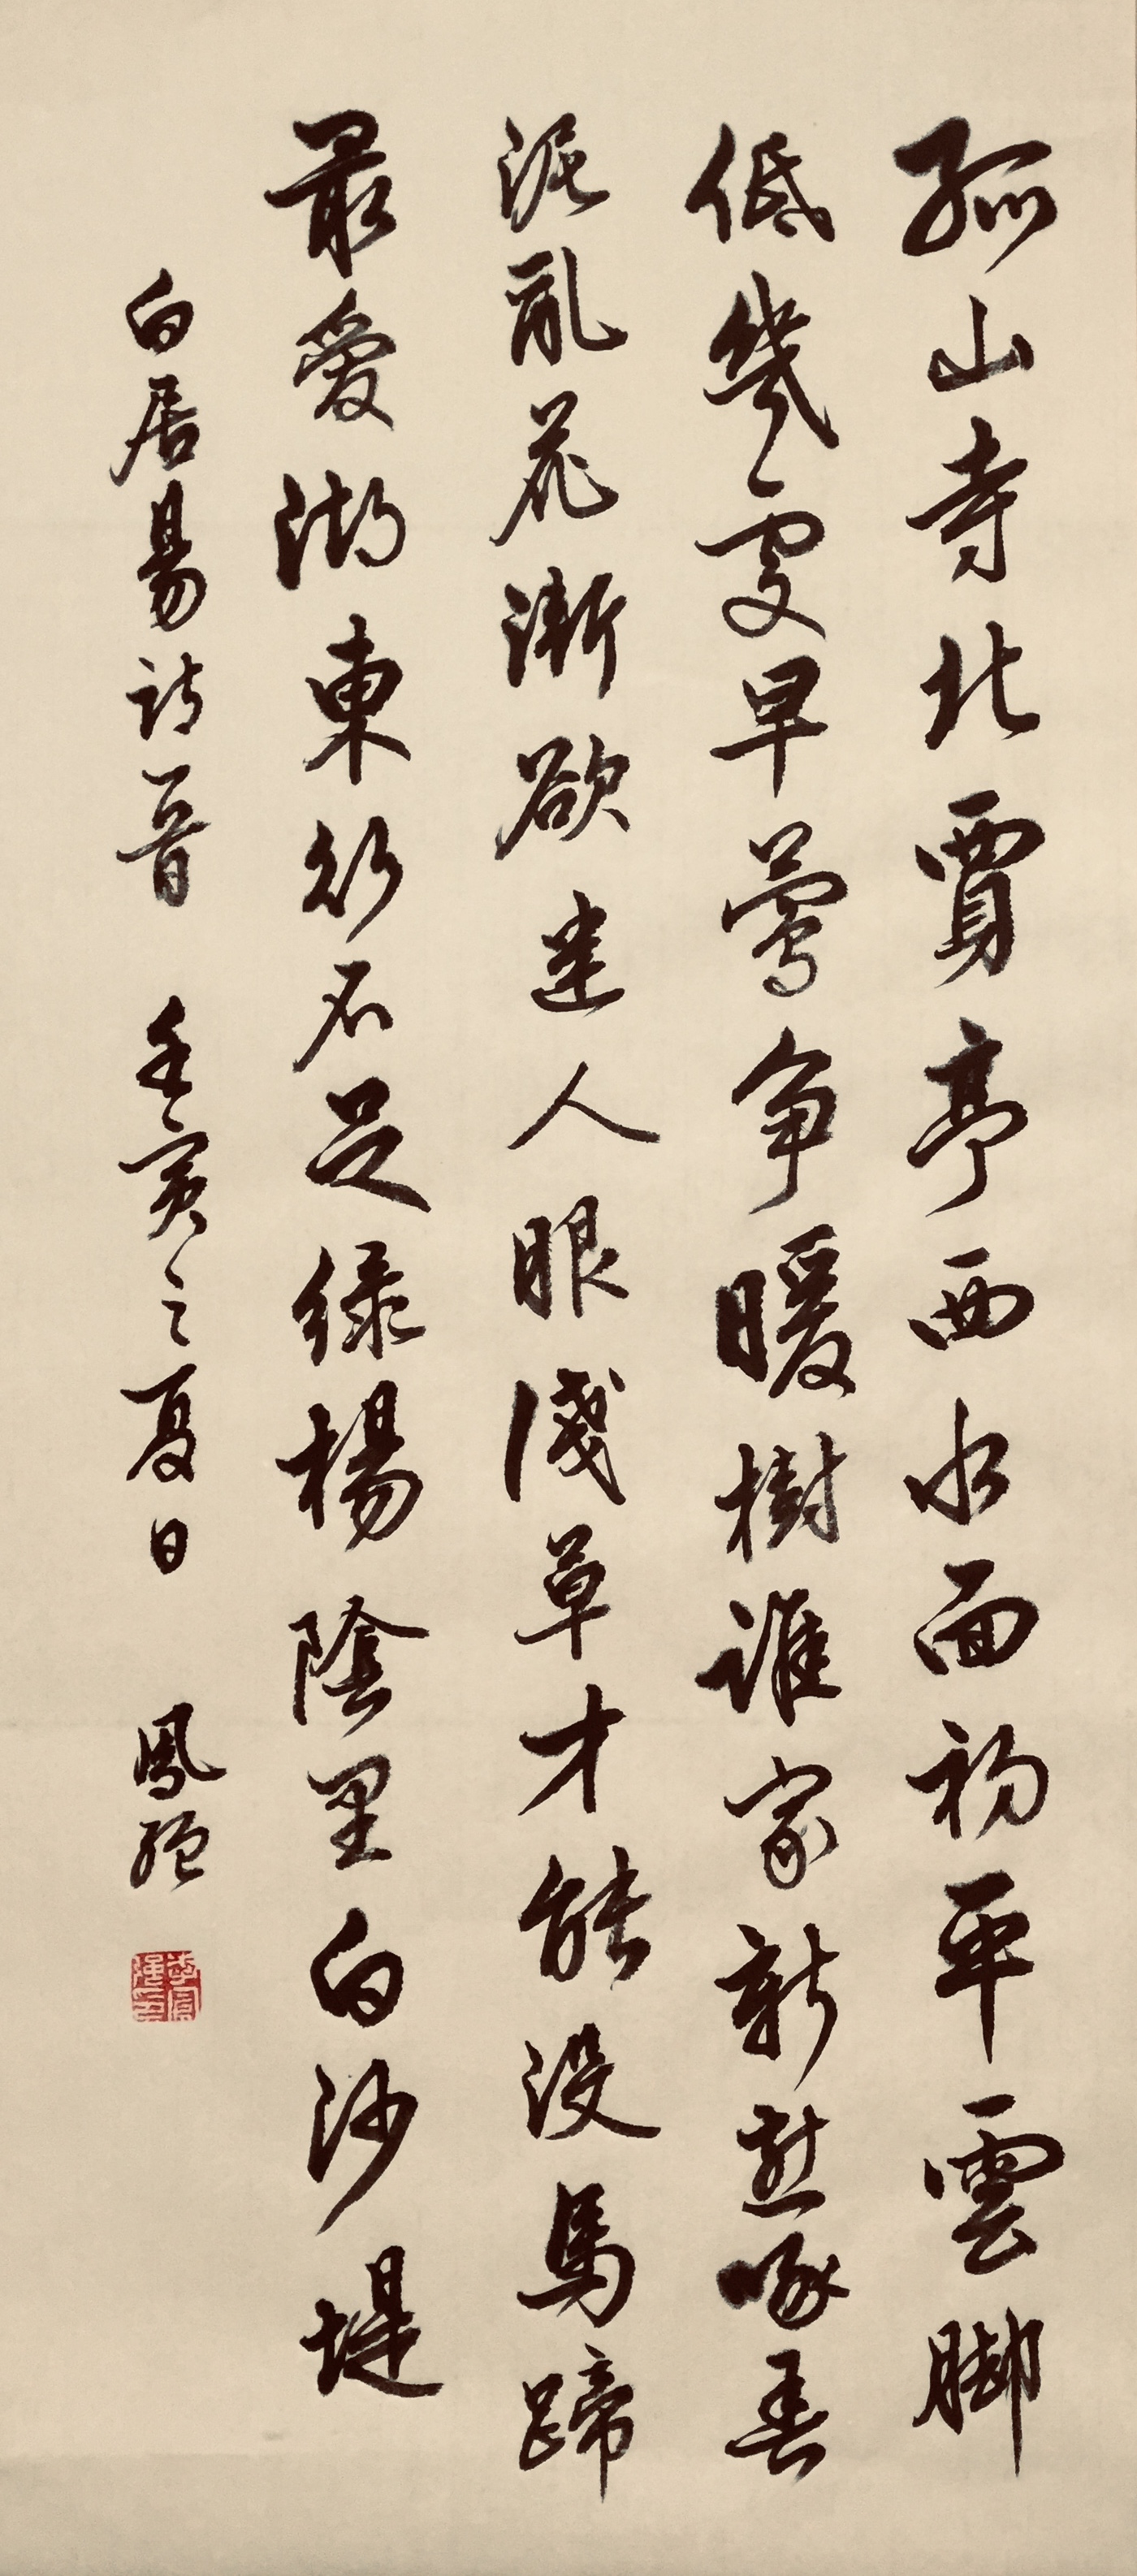 孤山寺北賈亭西水面初平雲脚
低幾處早鶯爭暖樹誰家新燕啄春
泥亂花漸欲迷人眼淺草才能没馬蹄
最愛湖東行不足緑楊陰里白沙堤
白居易詩一首 壬寅之夏日 鳳強